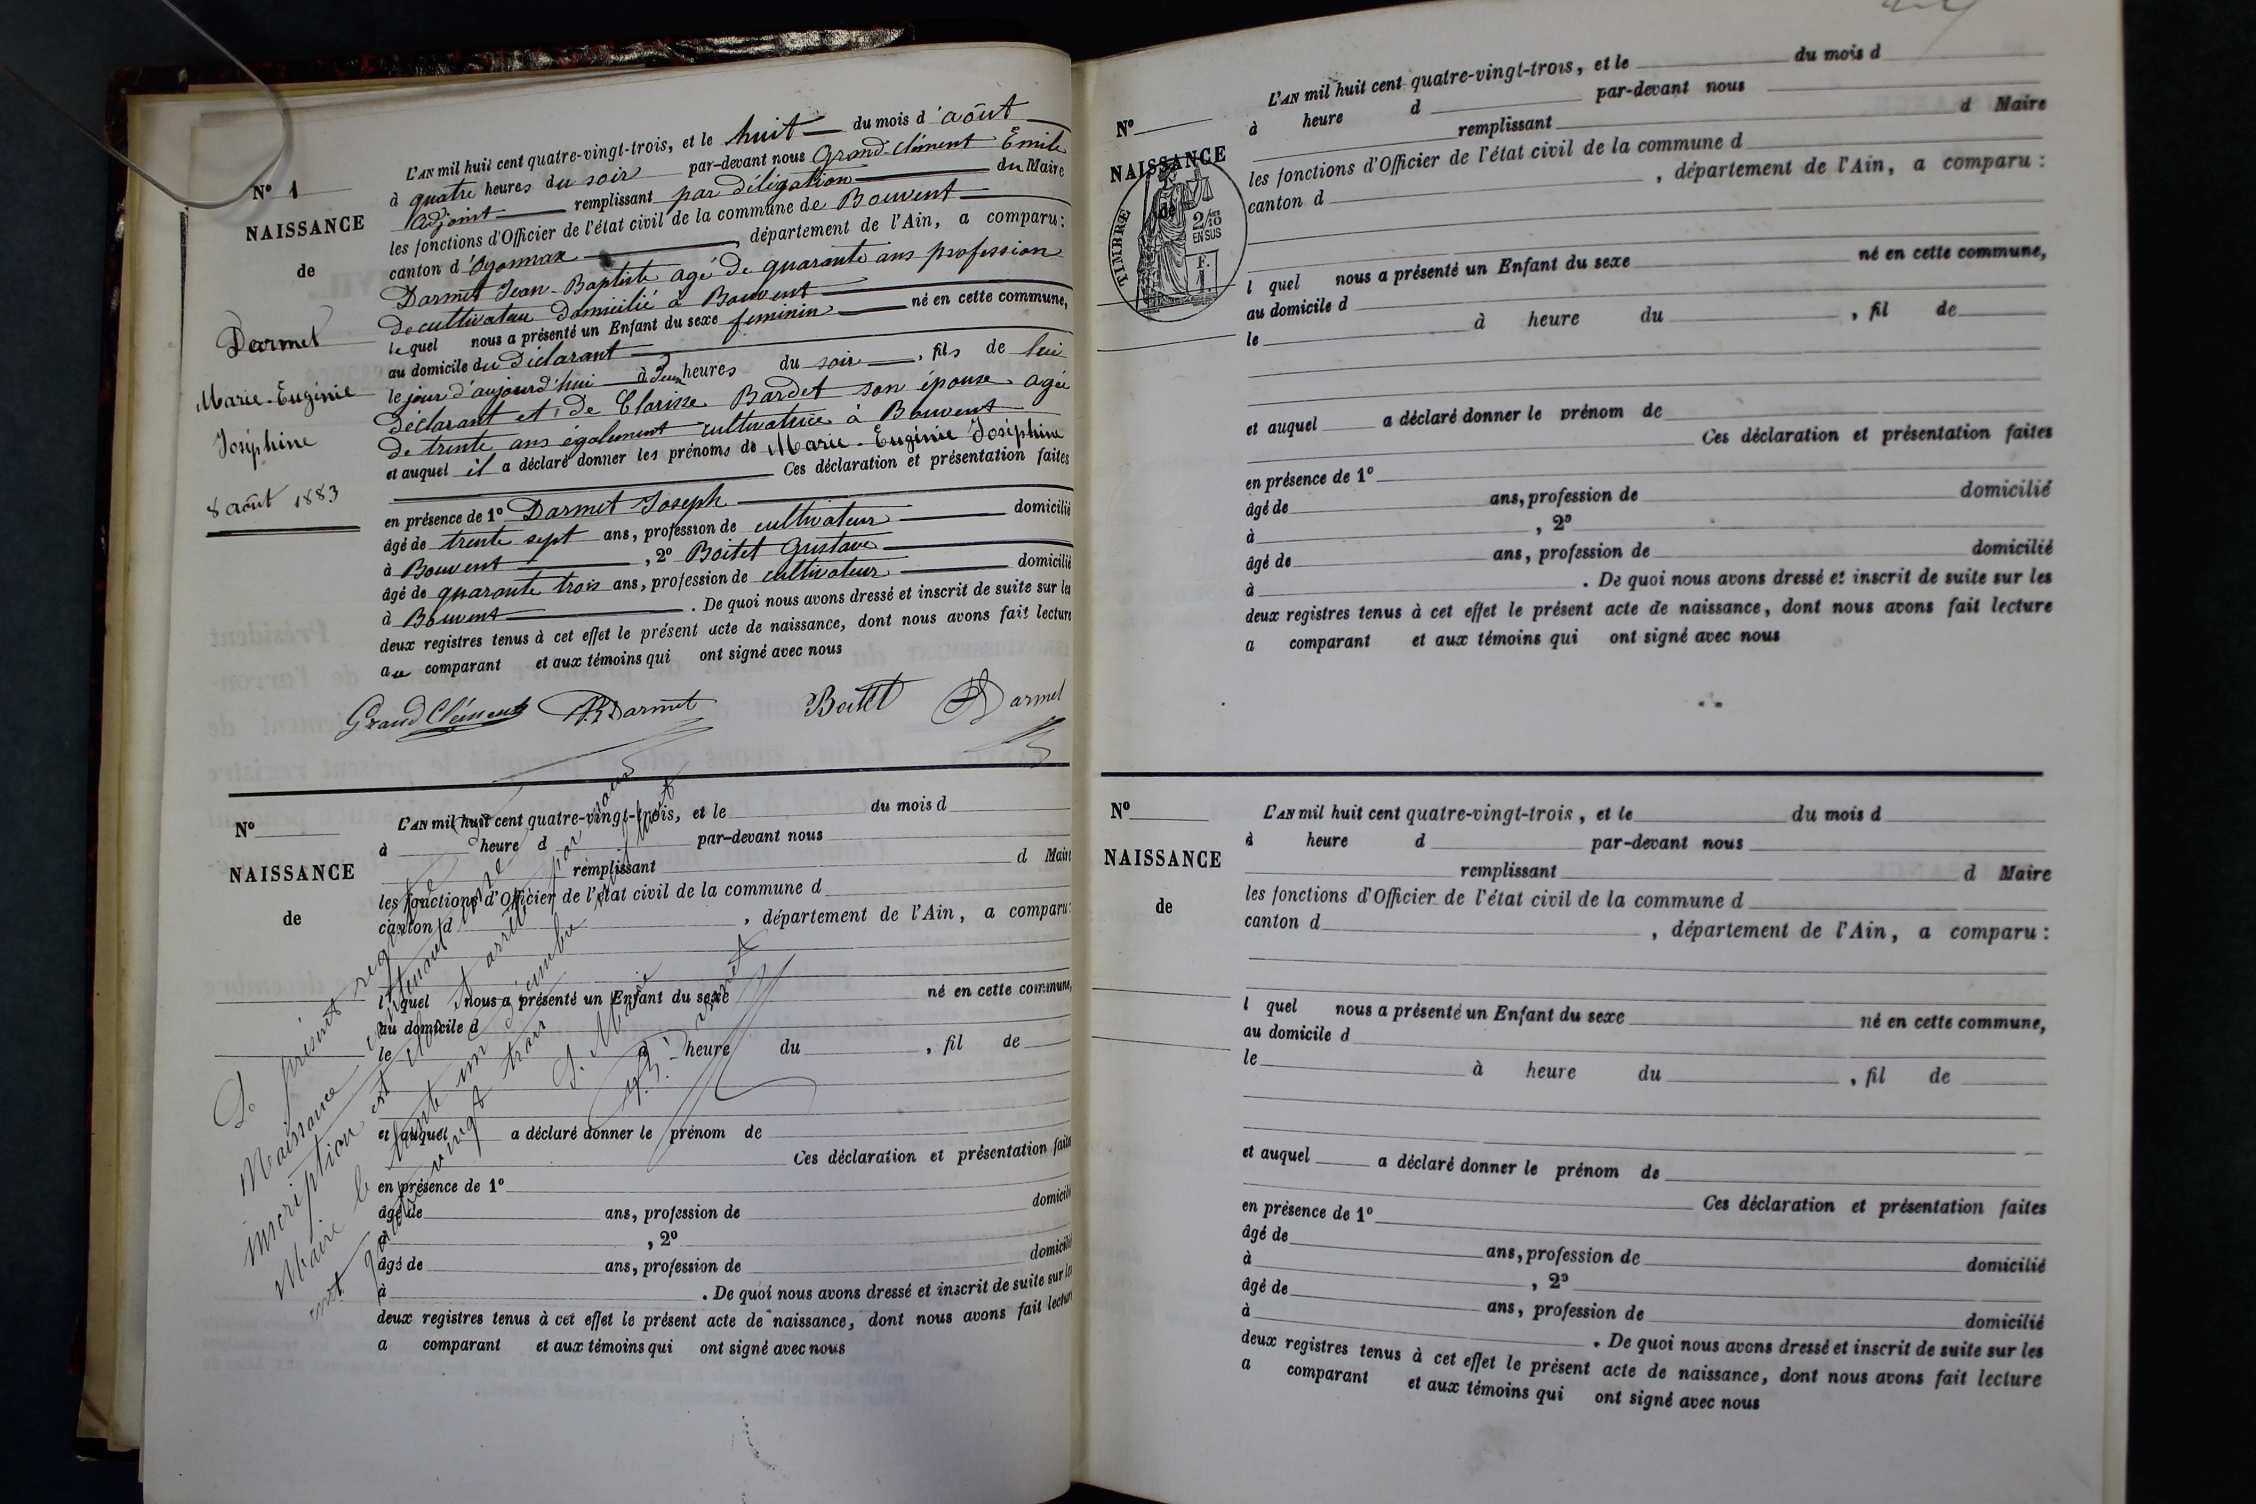 N° 1
NAISSANCE
de
Darmet
Marie-Eugénie
Joséphine
8 août 1883
L'AN mil huit cent quatre-vingt-trois, et le huit du mois d'août
à quatre heures du soir par-devant nous Grand-Clément Emile
Adjoint remplissant par délégation du Maire
les fonctions d'Officier de l'état civil de la commune de Bouvent
canton d'Oyonnax, département de l'Ain, a comparu:
Darmet Jean-Baptiste agé de quarante ans profession
de cultivateur domicilié à Bouvent
lequel nous a présenté un Enfant du sexe feminin né en cette commune,
au domicile du Déclarant
le jour d'aujourd'hui à deux heures du soir, fils de lui
déclarant et de Clarisse Bardet son épouse agée
de trente ans également cultivatrice à Bouvent
et auquel il a déclaré donner les prénoms de Marie-Eugénie Joséphine
Ces déclaration et présentation faites
en présence de 1° Darmet Joseph
âgé de trente sept ans, profession de cultivateur domicilié
à Bouvent, 2° Boitet Gustave
âgé de quarante trois ans, profession de cultivateur domicilié
à Bouvent. De quoi nous avons dressé et inscrit de suite sur les
deux registres tenus à cet effet le présent acte de naissance, dont nous avons fait lecture
au comparant et aux témoins qui ont signé avec nous
Grand Clément Darmet Boitet Darmet
N°
NAISSANCE
de
L'AN mil huit cent quatre-vingt-trois, et le du mois d
à heure d par-devant nous
remplissant d Maire
les fonctions d'Officier de l'état civil de la commune d
canton d , département de l'Ain, a comparu:
l quel nous a présenté un Enfant du sexe né en cette commune,
au domicile d
le à heure du , fil de
et auquel a déclaré donner le prénom de
Ces déclaration et présentation faites
en présence de 1°
âgé de ans, profession de domicilié
à , 2°
âgé de ans, profession de domicilié
à . De quoi nous avons dressé et inscrit de suite sur les
deux registres tenus à cet effet le présent acte de naissance, dont nous avons fait lecture
a comparant et aux témoins qui ont signé avec nous
Le présent registre de
Naissance contenant une
inscription est clos et arrêté par nous
Maire le trente un décembre mil huit
cent quatre vingt trois
Le Maire
Darmet
N°
NAISSANCE
de
TIMBRE
2/10
EN SUS
F.
1
L'AN mil huit cent quatre-vingt-trois, et le du mois d
à heure d par-devant nous
remplissant d Maire
les fonctions d'Officier de l'état civil de la commune d
canton d , département de l'Ain, a comparu :
l quel nous a présenté un Enfant du sexe né en cette commune,
au domicile d
le à heure du , fil de
et auquel a déclaré donner le prénom de
Ces déclaration et présentation faites
en présence de 1°
âgé de ans, profession de domicilié
à , 2°
âgé de ans, profession de domicilié
à . De quoi nous avons dressé et inscrit de suite sur les
deux registres tenus à cet effet le présent acte de naissance, dont nous avons fait lecture
a comparant et aux témoins qui ont signé avec nous
N°
NAISSANCE
de
L'AN mil huit cent quatre-vingt-trois, et le du mois d
à heure d par-devant nous
remplissant d Maire
les fonctions d'Officier de l'état civil de la commune d
canton d , département de l'Ain, a comparu :
l quel nous a présenté un Enfant du sexe né en cette commune,
au domicile d
le à heure du , fil de
et auquel a déclaré donner le prénom de
Ces déclaration et présentation faites
en présence de 1°
âgé de ans, profession de domicilié
à , 2°
âgé de ans, profession de domicilié
à . De quoi nous avons dressé et inscrit de suite sur les
deux registres tenus à cet effet le présent acte de naissance, dont nous avons fait lecture
a comparant et aux témoins qui ont signé avec nous